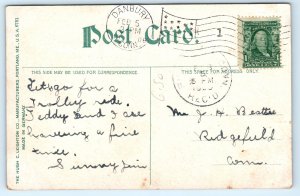 DANBURY
5
CONN.
1
Post Card
THIS SIDE MAY BE USED FOR CORRESPONDENCE.
THIS SIDE IS FOR THE ADDRESS
THE HUGH C. LEIGHTON CO., MANUFACTURERS, PORTLAND, ME., U.S.A.
MADE IN GERMANY
REC'D
Let's go for a
Trolley ride.
Teddy and I are
having a fine
time.
Sunny Jim
Mr. J. H. Beattie
Ridgefield
Conn.